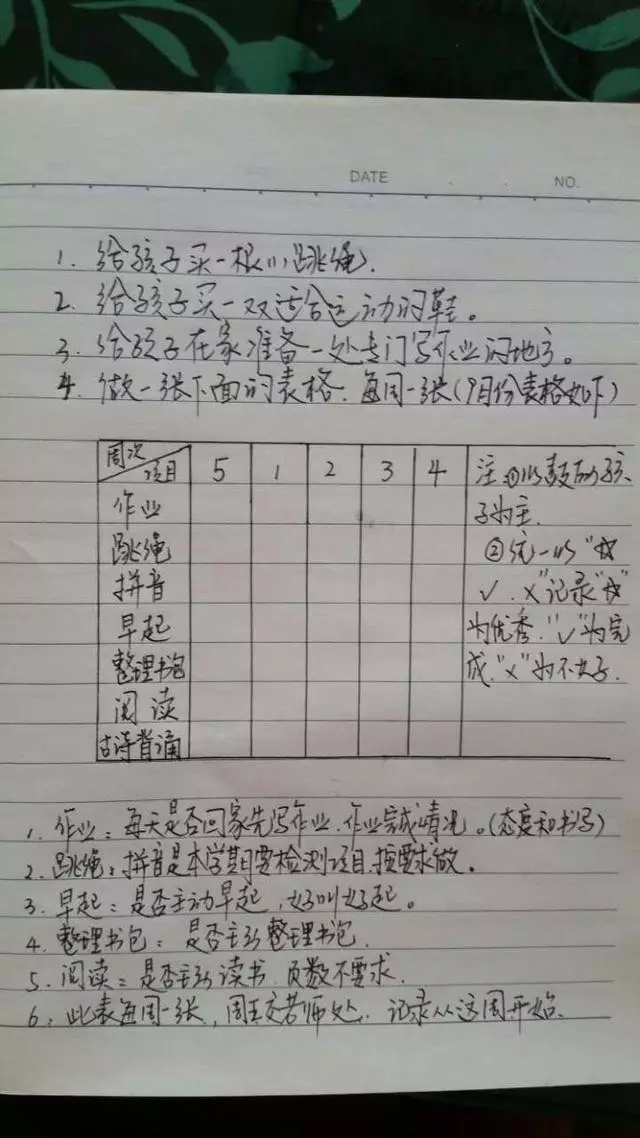 DATE
NO.
1. 给孩子买一根小跳绳.
2. 给孩子买一双适合运动的鞋。
3. 给孩子在家准备一处专门写作业的地方。
4. 做一张下面的表格.每周一张(9月份表格如下)
周次
项目 5 1 2 3 4 注①以鼓励孩
作业 子为主.
跳绳 ②统一以"☆
拼音 √.×"记录"☆"
早起 为优秀."√"为完
整理书包 成."×"为不太好.
阅读
古诗背诵
1. 作业:每天是否回家先写作业.作业完成情况。(态度和书写)
2. 跳绳:拼音是本学期要检测项目.按要求做。
3. 早起:是否主动早起,好叫好起。
4. 整理书包:是否主动整理书包.
5. 阅读:是否主动读书.页数不要求.
6. 此表每周一张,周五交老师处.记录从这周开始.